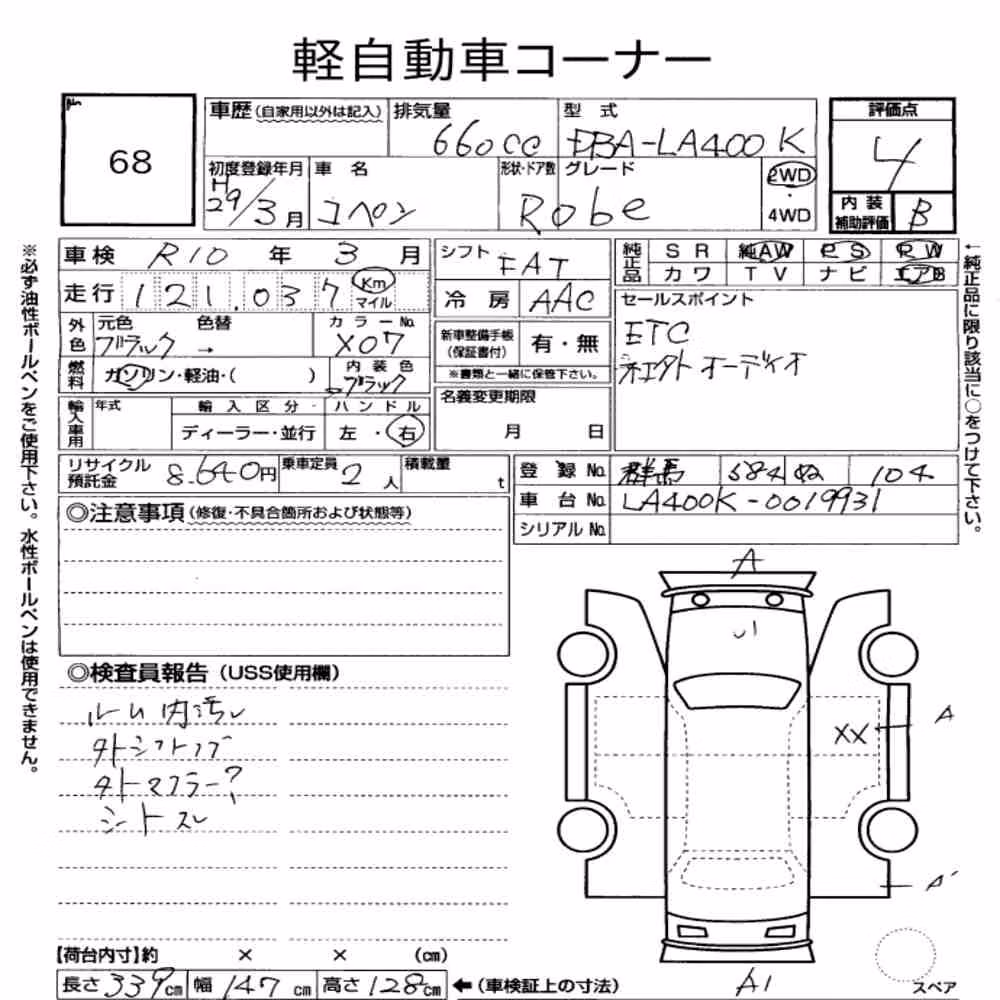 軽自動車コーナー
68
車歴(自家用以外は記入) 排気量 660cc 型式 DBA-LA400K 評価点 4
初度登録年月 H29/3月 車名 コペン 形状・ドア数 グレード Robe 2WD・4WD 内装補助評価 B
※必ず油性ボールペンをご使用下さい。水性ボールペンは使用できません。
車検 R10年 3月 シフト FAT 純正品 SR 純AW PS PW
カワ TV ナビ エアB
←純正品に限り該当に○をつけて下さい。
走行 121.037 Km マイル 冷房 AAC セールスポイント
外色 元色 ブラック 色替 → カラーNo. X07 新車整備手帳(保証書付) 有・無 ETC
燃料 ガソリン・軽油・( ) 内装色 ブラック ※書類と一緒に保管下さい。 社外オーディオ
輸入車用 年式 輸入区分 ディーラー・並行 ハンドル 左・右 名義変更期限 月 日
リサイクル預託金 8.640円 乗車定員 2人 積載量 t 登録No. 群馬 584 ぬ 104
車台No. LA400K-0019931
シリアルNo.
◎注意事項(修復・不具合箇所および状態等)
◎検査員報告(USS使用欄)
ルーム内汚レ
外シフトノブ
外マフラー?
シートスレ
A
U1
XX
A
A'
A1
スペア
【荷台内寸】約 × × (cm)
長さ 339cm 幅 147cm 高さ 128cm ←(車検証上の寸法)